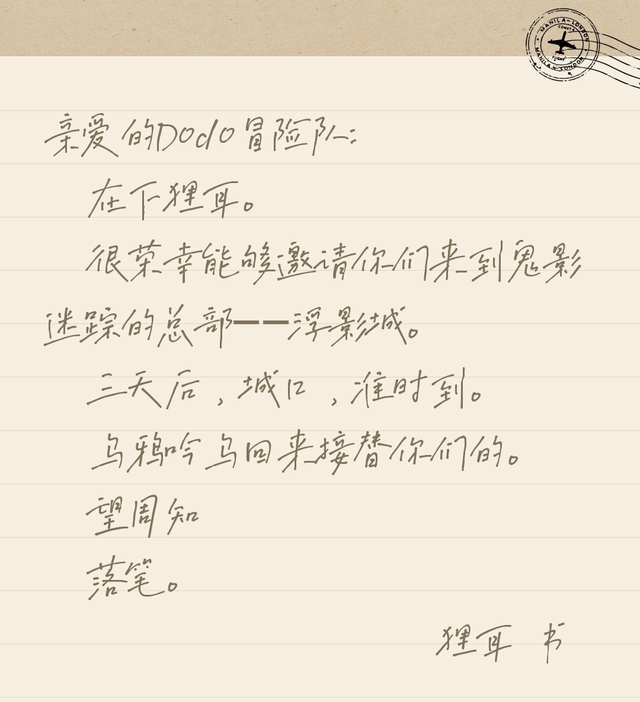 MANILA-LONDON
亲爱的Dodo冒险队:
在下狸耳。
很荣幸能够邀请你们来到鬼影
迷踪的总部——浮影城。
三天后，城口，准时到。
乌鸦吟乌回来接替你们的。
望周知
落笔。
狸耳 书